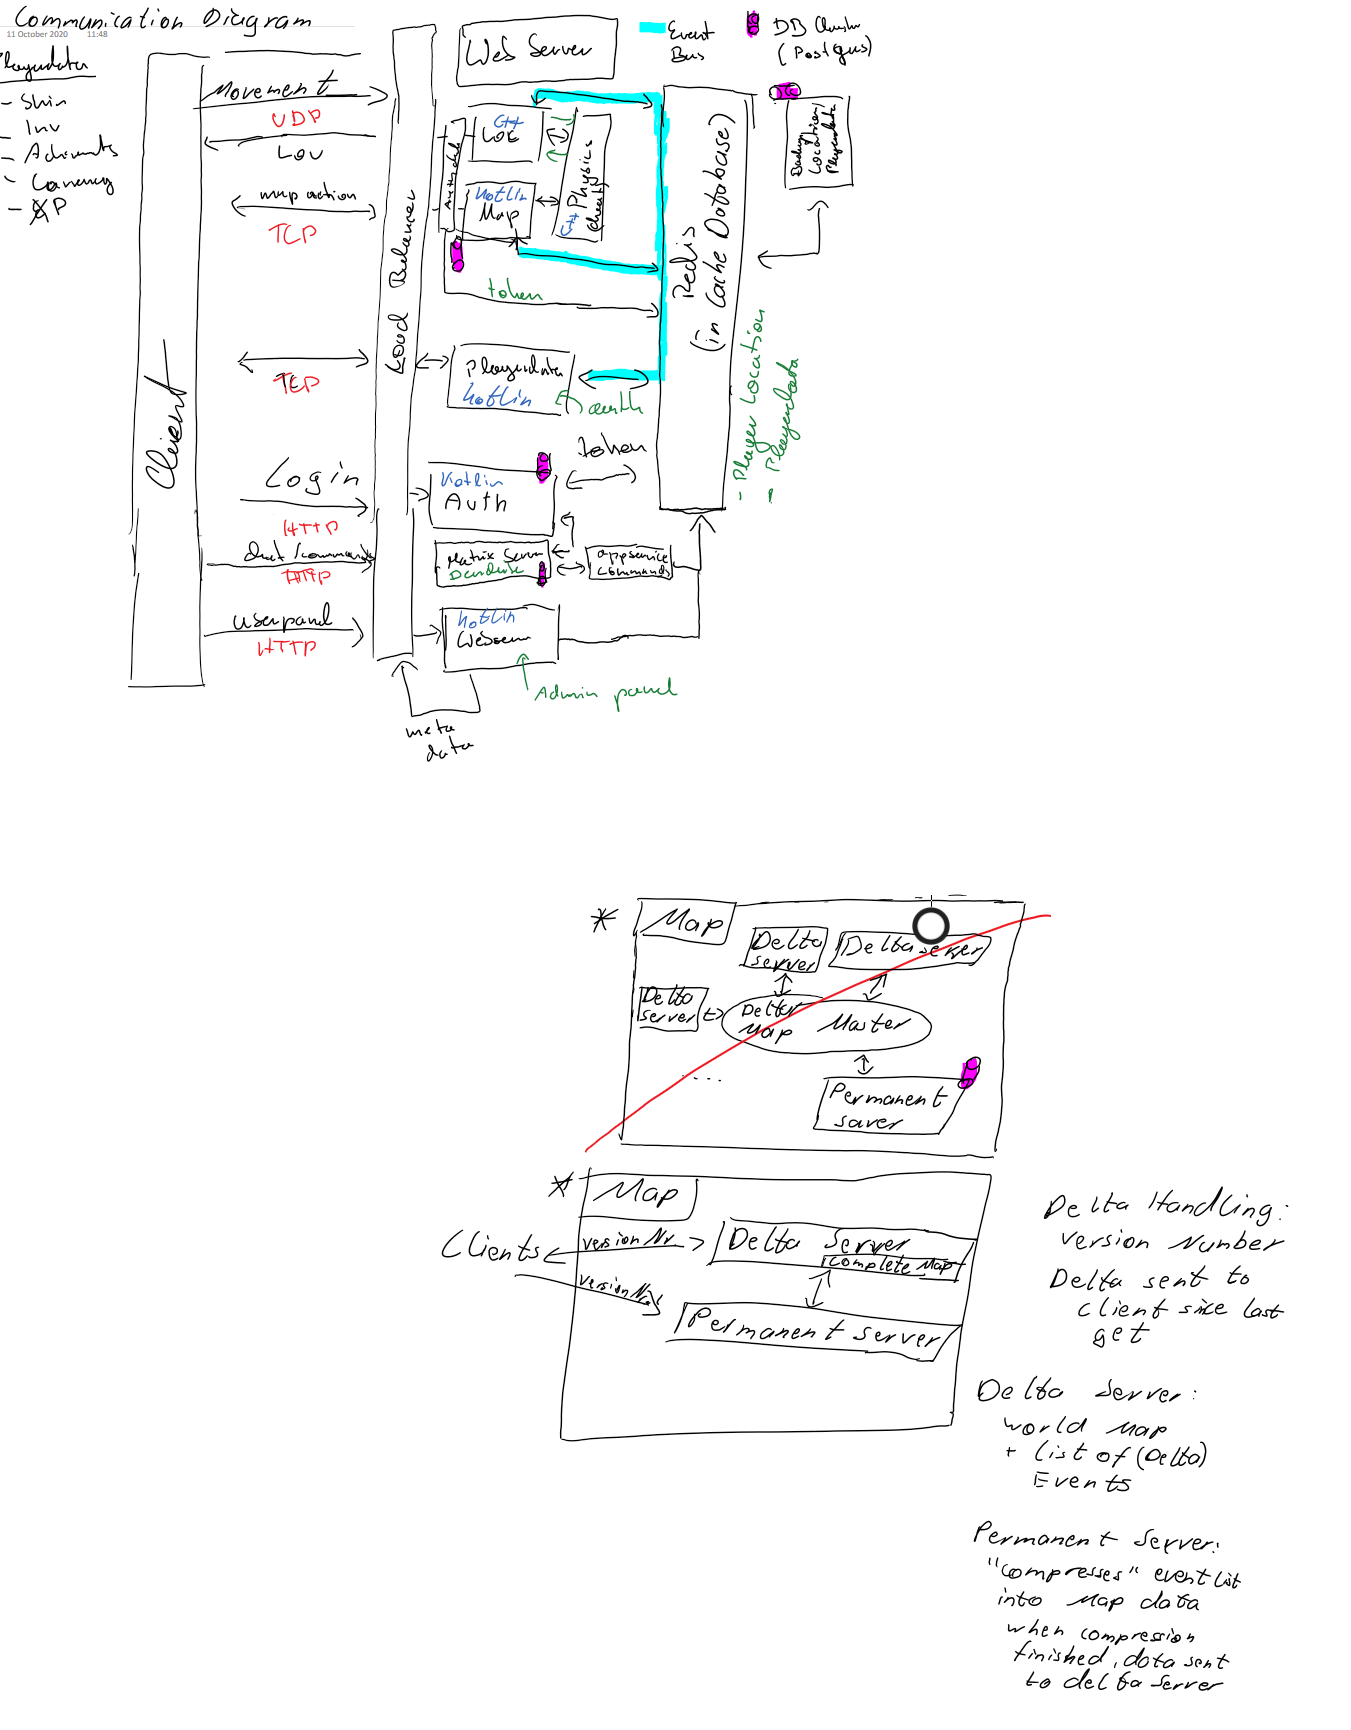 Communication Diagram
11 October 2020 11:48
Playerdata
- Skin
- Inv
-
- Currency
- XP
Client
Movement
UDP
Lov
map action
TCP
TCP
Login
HTTP
chat/commands
HTTP
userpanel
HTTP
Load Balancer
meta
data
Web Server
Event
Bus
DB Cluster
(Postgres)
C++
Loc
Kotlin
Map
C++ Physics
(cheats)
token
playerdata
Kotlin
auth
Kotlin
Auth
token
Matrix Server
Dendrite
appservice
commands
Kotlin
Admin panel
Redis
(in Cache Database)
Backup
Location/
Playerdata
- Player Location
- Playerdata
* Map
Delta
server
Delta server
Delta
server
Delta
Map
Master
....
Permanent
saver
* Map
Clients
version Nr
Delta Server
complete Map
version Nr
Permanent server
Delta Handling:
version Number
Delta sent to
client since last
get
Delta server:
world Map
+ list of (Delta)
Events
Permanent Server:
"compresses" event list
into Map data
when compression
finished, data sent
to delta server